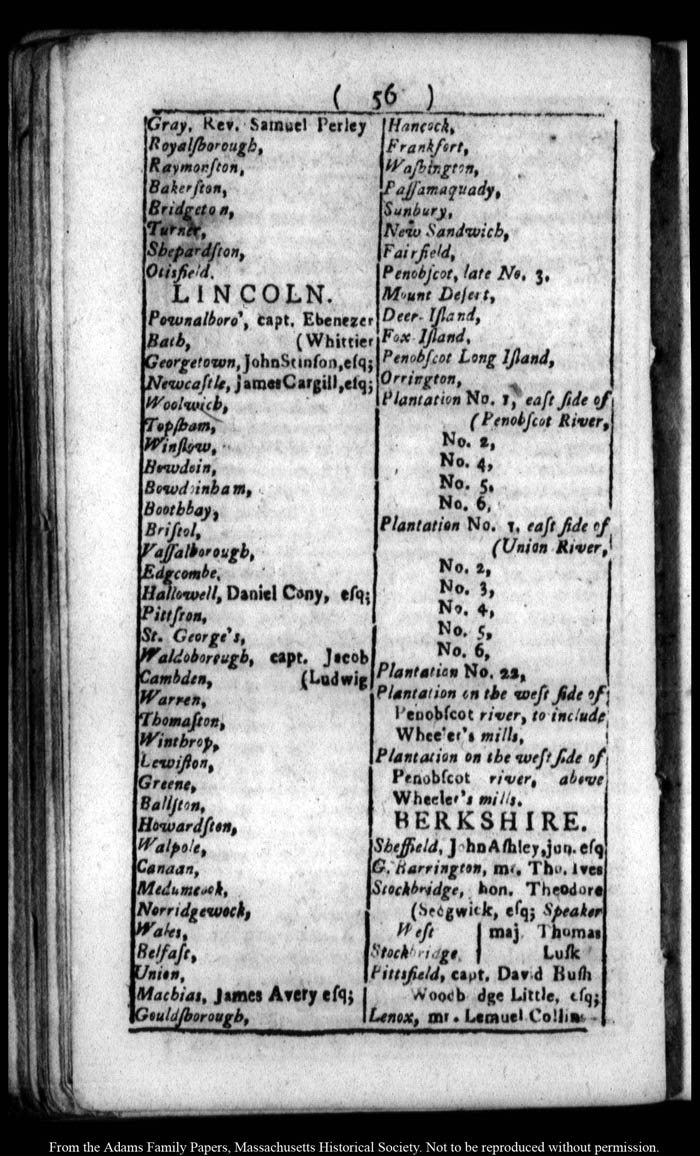 ( 56 )
Gray, Rev. Samuel Perley
Royalſborough,
Raymonſton,
Bakerſton,
Bridgeton,
Turner,
Shepardſton,
Otisfield.
LINCOLN.
Pownalboro', capt. Ebenezer
Bath, (Whittier
Georgetown, John Stinſon, eſq;
Newcaſtle, James Cargill, eſq;
Woolwich,
Topſham,
Winſlow,
Bowdoin,
Bowdoinham,
Boothbay,
Briſtol,
Vaſſalborough,
Edgcombe,
Hallowell, Daniel Cony, eſq;
Pittſton,
St. George's,
Waldoborough, capt. Jacob
Cambden, (Ludwig
Warren,
Thomaſton,
Winthrop,
Lewiſton,
Greene,
Ballſton,
Howardſton,
Walpole,
Canaan,
Medumcook,
Norridgewock,
Wales,
Belfaſt,
Union,
Machias, James Avery eſq;
Gouldſborough,
Hancock,
Frankfort,
Waſhington,
Paſſamaquady,
Sunbury,
New Sandwich,
Fairfield,
Penobſcot, late No. 3.
Mount Deſert,
Deer Iſland,
Fox Iſland,
Penobſcot Long Iſland,
Orrington,
Plantation No. 1, eaſt ſide of
(Penobſcot River,
No. 2,
No. 4,
No. 5,
No. 6,
Plantation No. 1, eaſt ſide of
(Union River,
No. 2,
No. 3,
No. 4,
No. 5,
No. 6,
Plantation No. 22,
Plantation on the weſt ſide of
Penobſcot river, to include
Wheeler's mills,
Plantation on the weſt ſide of
Penobſcot river, above
Wheeler's mills.
BERKSHIRE.
Sheffield, John Aſhley, jun. eſq
G. Barrington, mr. Tho. Ives
Stockbridge, hon. Theodore
(Sedgwick, eſq; Speaker
Weſt | maj. Thomas
Stockbridge, | Luſk
Pittsfield, capt. David Buſh
Woodb dge Little, eſq;
Lenox, mr. Lemuel Collins
From the Adams Family Papers, Massachusetts Historical Society. Not to be reproduced without permission.